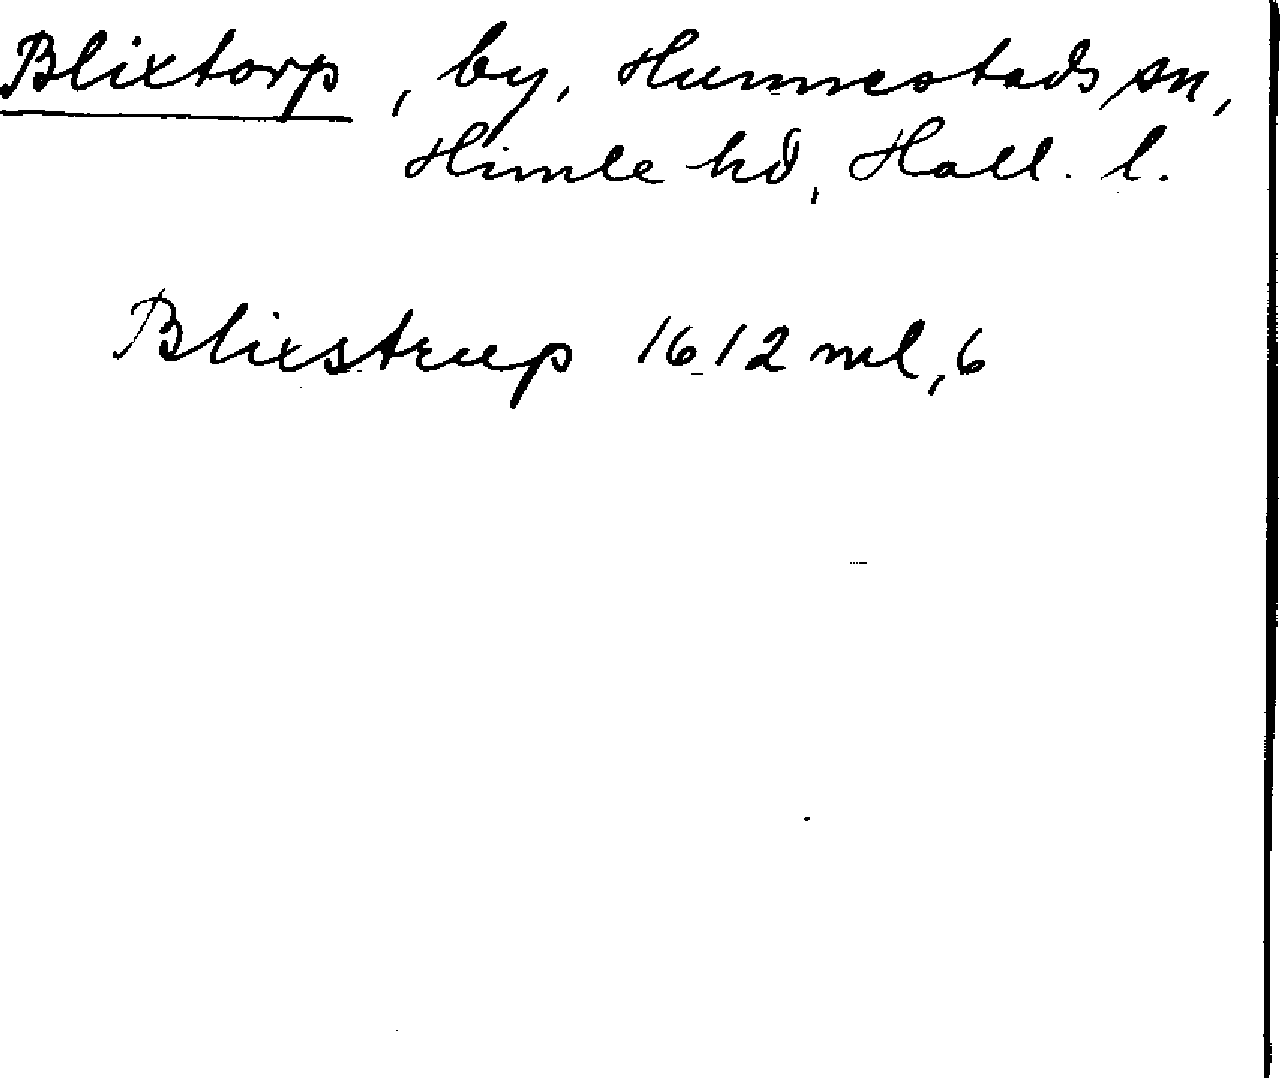 Blixtorp, by, Hunnestads sn,
Himle hd, Hall. l.
Blixstrup 1612 ml, 6